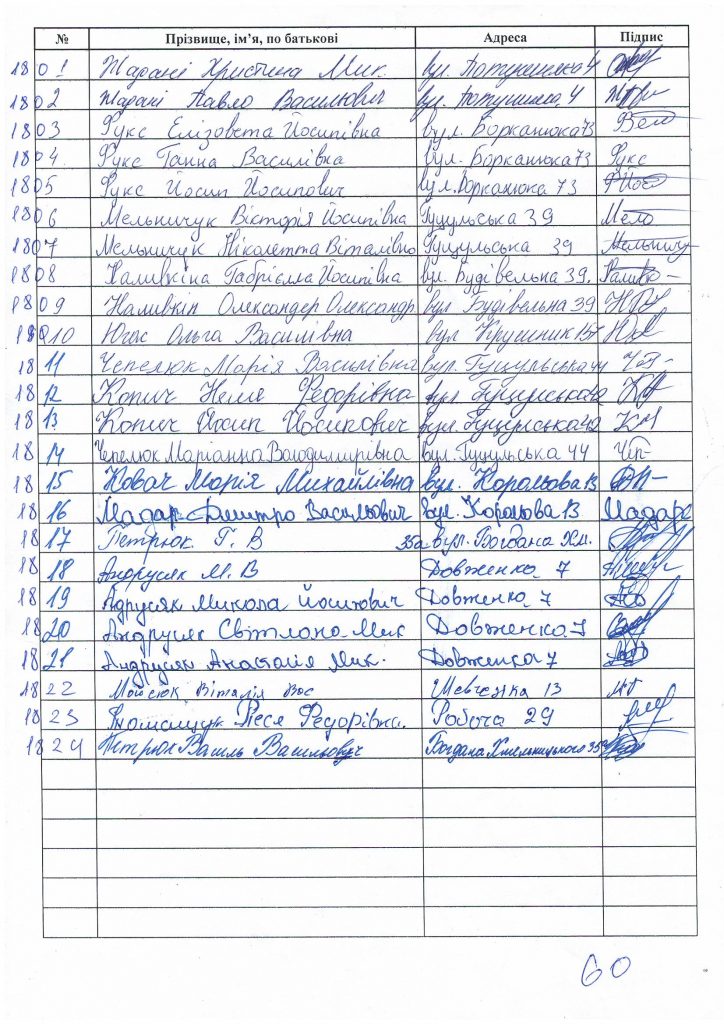 № Прізвище, ім’я, по батькові Адреса Підпис
1801 Жарані Христина Мик. вул. 4
1802 Жарані Павло Васильович вул. 4
1803 Фукс Елізавета Йосипівна вул. Борканюка 73
1804. Фукс Ганна Василівна вул. Борканюка 73 Фукс
1805 Фукс Йосип Йосипович вул. Борканюка 73
1806 Мельничук Вікторія Йосипівна Гуцульська 39
1807 Мельничук Ніколетта Віталівна Гуцульська 39
1808 Наливкіна Габрієлла Йосипівна вул. Будівельна 39,
1809 Наливкін Олександер Олександр вул Будівельна 39
1810 Югас Ольга Василівна вул
1811 Чепелюк Марія Василівна вул. Гуцульська 44
1812 Копич Федорівна вул Гуцульська 42
1813 Копич Йосип Йосипович вул. Гуцульська 42
1814 Чепелюк Маріанна Володимирівна вул. Гуцульська 44 Чеп-
1815 Ковач Марія Михайлівна вул. Корольова 13
1816 Мадар Дмитро Васильович вул. Корольова 13 Мадаре
1817 Петрюк Г. В 35а вул. Богдана Хм.
1818 Андрусяк М. В Довженка 7
1819 Адрусяк Микола Йосипович Довженка 7
1820 Андрусяк Світлана Мик Довженка 7
1821 Андрусяк Анастасія Мик. Довженка 7
1822 Мойсюк Віталія Вас Шевченка 13
1823 Леся Федорівна. Робоча 29
1824 Петрюк Василь Васильович Богдана Хмельницького 35а
60